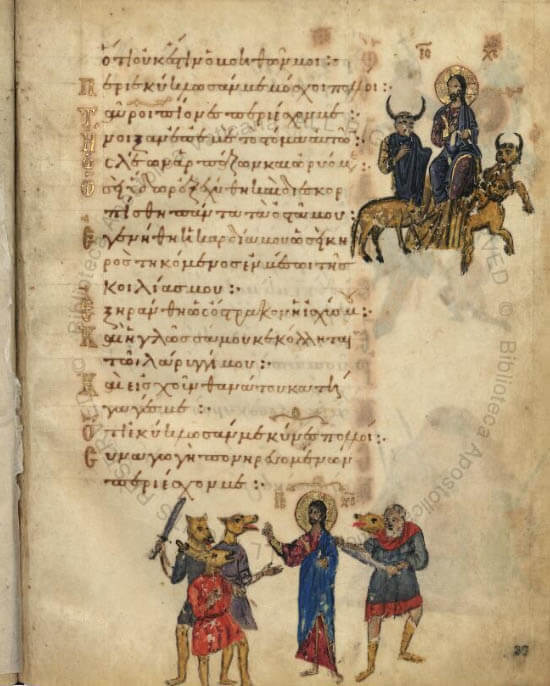 ὅτι οὐκ ἔστιν ὁ βοηθῶν μοι :
Περιεκύκλωσάν με μόσχοι πολλοί :
Ταῦροι πίονες περιέσχον με
Ἤνοιξαν ἐπ' ἐμὲ τὸ στόμα αὐτῶν
ὡς λέων ὁ ἁρπάζων καὶ ὠρυόμε
Ὡσεὶ ὕδωρ ἐξεχύθην καὶ διεσκορ
πίσθη πάντα τὰ ὀστᾶ μου :
Ἐγενήθη ἡ καρδία μου ὡσεὶ κη
ρὸς τηκόμενος ἐν μέσῳ τῆς
κοιλίας μου :
Ἐξηράνθη ὡς ὄστρακον ἡ ἰσχύς μ
Καὶ ἡ γλῶσσά μου κεκόλληται
τῷ λάρυγγί μου :
Καὶ εἰς χοῦν θανάτου κατή
γαγές με :
Ὅτι ἐκύκλωσάν με κύνες πολλοί :
Συναγωγὴ πονηρευομένων
περιέσχον με :
ΙC ΧC
ΙC ΧC
37
© Biblioteca Apostolica